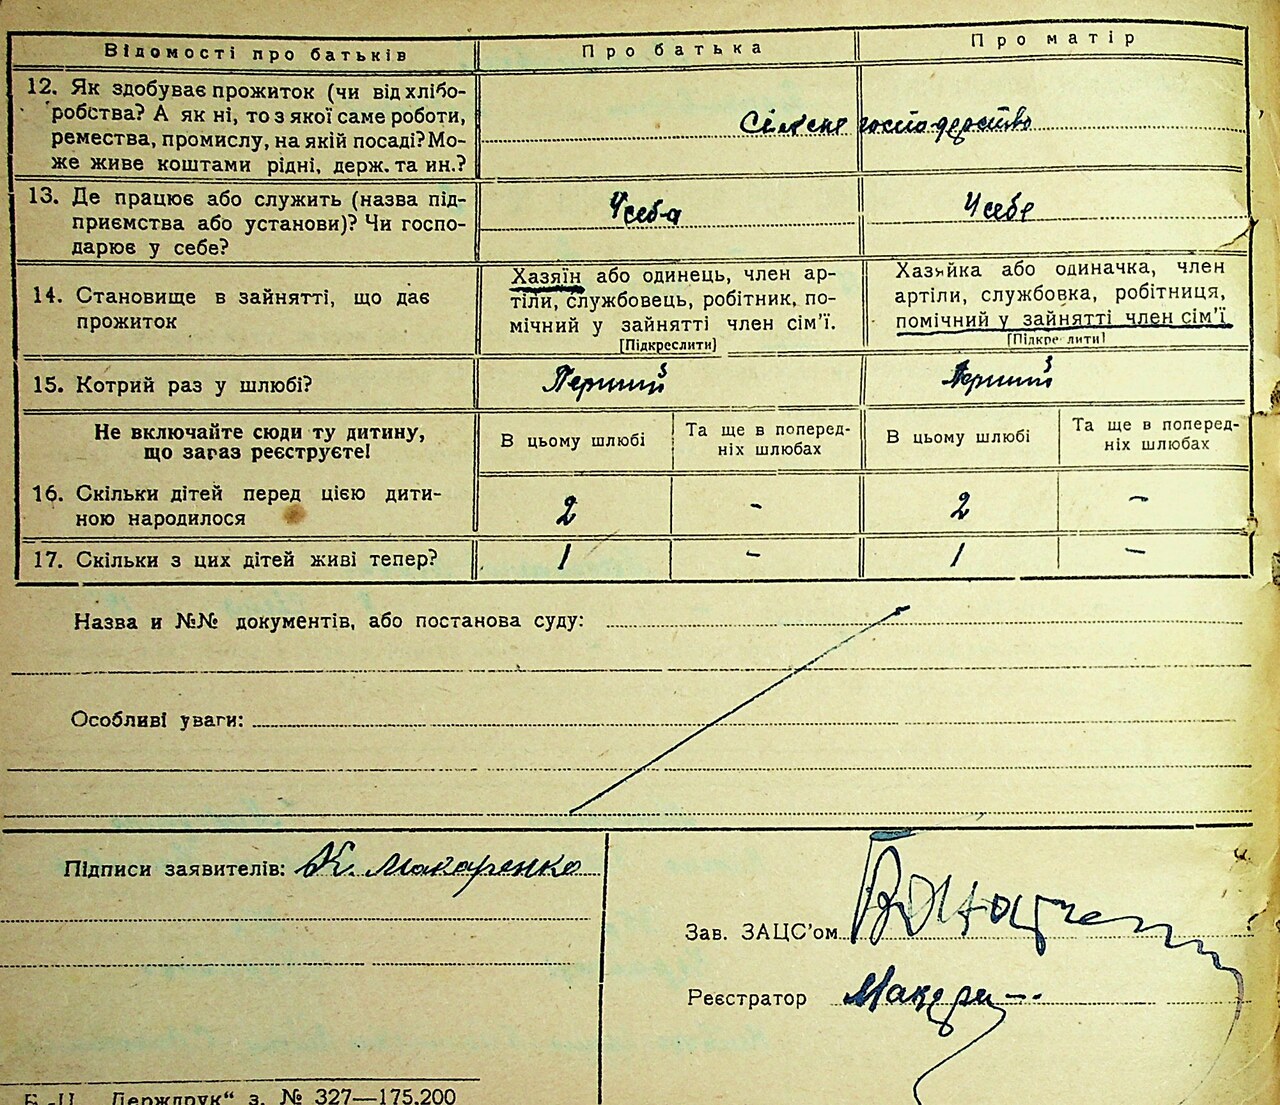 Відомості про батьків
Про батька
Про матір
12. Як здобуває прожиток (чи від хлібо-
робства? А як ні, то з якої саме роботи,
ремества, промислу, на якій посаді? Мо-
же живе коштами рідні, держ. та ин.?
Сільське господарство
13. Де працює або служить (назва під-
приємства або установи)? Чи госпо-
дарює у себе?
У себе
У себе
14. Становище в зайнятті, що дає
прожиток
Хазяїн або одинець, член ар-
тіли, службовець, робітник, по-
мічний у зайнятті член сім'ї.
[Підкреслити]
Хазяйка або одиначка, член
артіли, службовка, робітниця,
помічний у зайнятті член сім'ї
[Підкреслити]
15. Котрий раз у шлюбі?
Перший
Перший
Не включайте сюди ту дитину,
що зараз реєструєте!
В цьому шлюбі
Та ще в поперед-
ніх шлюбах
В цьому шлюбі
Та ще в поперед-
ніх шлюбах
16. Скільки дітей перед цією дити-
ною народилося
2
-
2
-
17. Скільки з цих дітей живі тепер?
1
-
1
-
Назва и №№ документів, або постанова суду:
Особливі уваги:
Підписи заявителів: К. Макаренко
Зав. ЗАЦС'ом
Реєстратор
Держдрук" з. № 327—175.200